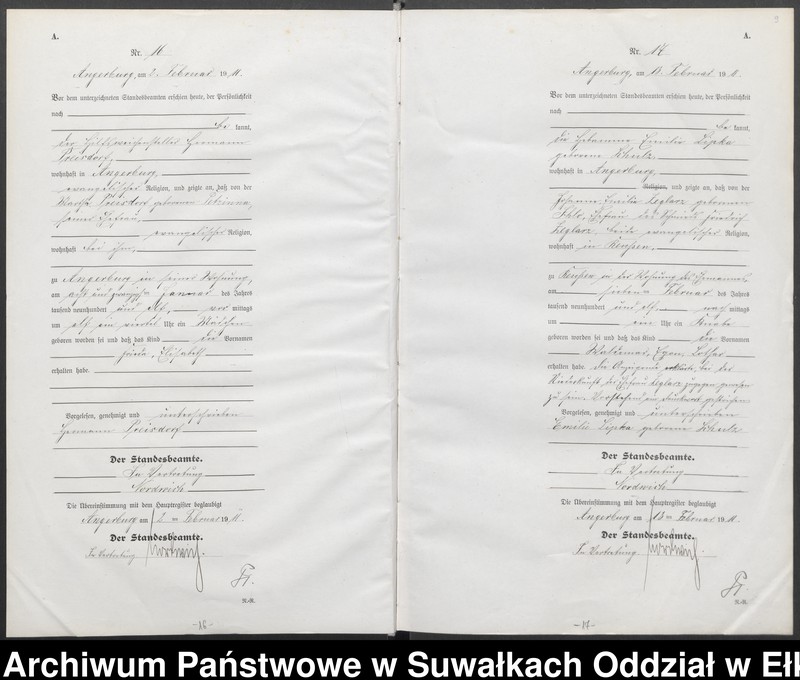 A.
Nr. 16
Angerburg, am 2. Februar 1911.
Vor dem unterzeichneten Standesbeamten erschien heute, der Persönlichkeit
nach
be kannt,
der Hermann
wohnhaft in Angerburg,
evangelischer Religion, und zeigte an, daß von der
geborenen
seiner Ehefrau,
evangelischer Religion,
wohnhaft bei ihm,
zu Angerburg in seiner Wohnung,
am acht und zwanzigsten Januar des Jahres
tausend neunhundert und elf, vor mittags
um elf ein viertel Uhr ein Mädchen
geboren worden sei und daß das Kind die Vornamen
Elisabeth
erhalten habe.
Vorgelesen, genehmigt und unterschrieben
Hermann
Der Standesbeamte.
In Vertretung
Nordwich
Die Übereinstimmung mit dem Hauptregister beglaubigt
Angerburg am 2ten Februar 1911.
Der Standesbeamte.
In Vertretung
N.-R.
-16-
A.
Nr. 17
Angerburg, am 13. Februar 1911.
Vor dem unterzeichneten Standesbeamten erschien heute, der Persönlichkeit
nach
be kannt,
die Hebamme Emilie Lipka
geborene Schulz
wohnhaft in Angerburg,
Religion, und zeigte an, daß von der
Johanne Emilie Leglarz geborenen
Ehefrau des Schmieds Friedrich
Leglarz, beide evangelischer Religion,
wohnhaft in Reussen,
zu Reussen in der Wohnung des Ehemannes,
am siebenten Februar des Jahres
tausend neunhundert und elf, nach mittags
um ein Uhr ein Knabe
geboren worden sei und daß das Kind die Vornamen
Waldemar, Egon, Lothar
erhalten habe. Die Anzeigende erklärte, bei der
Niederkunft der Ehefrau Leglarz zugegen gewesen
zu sein. Vorstehend ein Druckwort gestrichen.
Vorgelesen, genehmigt und unterschrieben
Emilie Lipka geborene Schulz
Der Standesbeamte.
In Vertretung
Nordwich
Die Übereinstimmung mit dem Hauptregister beglaubigt
Angerburg am 13ten Februar 1911.
Der Standesbeamte.
In Vertretung
N.-R.
-17-
Archiwum Państwowe w Suwałkach Oddział w Ełk